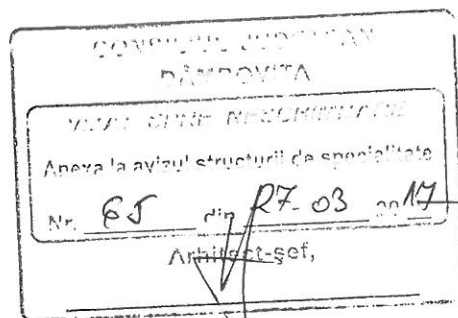 CONSILIUL JUDEȚEAN
DÂMBOVIȚA
VIZAT SPRE NESCHIMBARE
Anexa la avizul structurii de specialitate
Nr. 65 din 27-03 2017
Arhitect-șef,